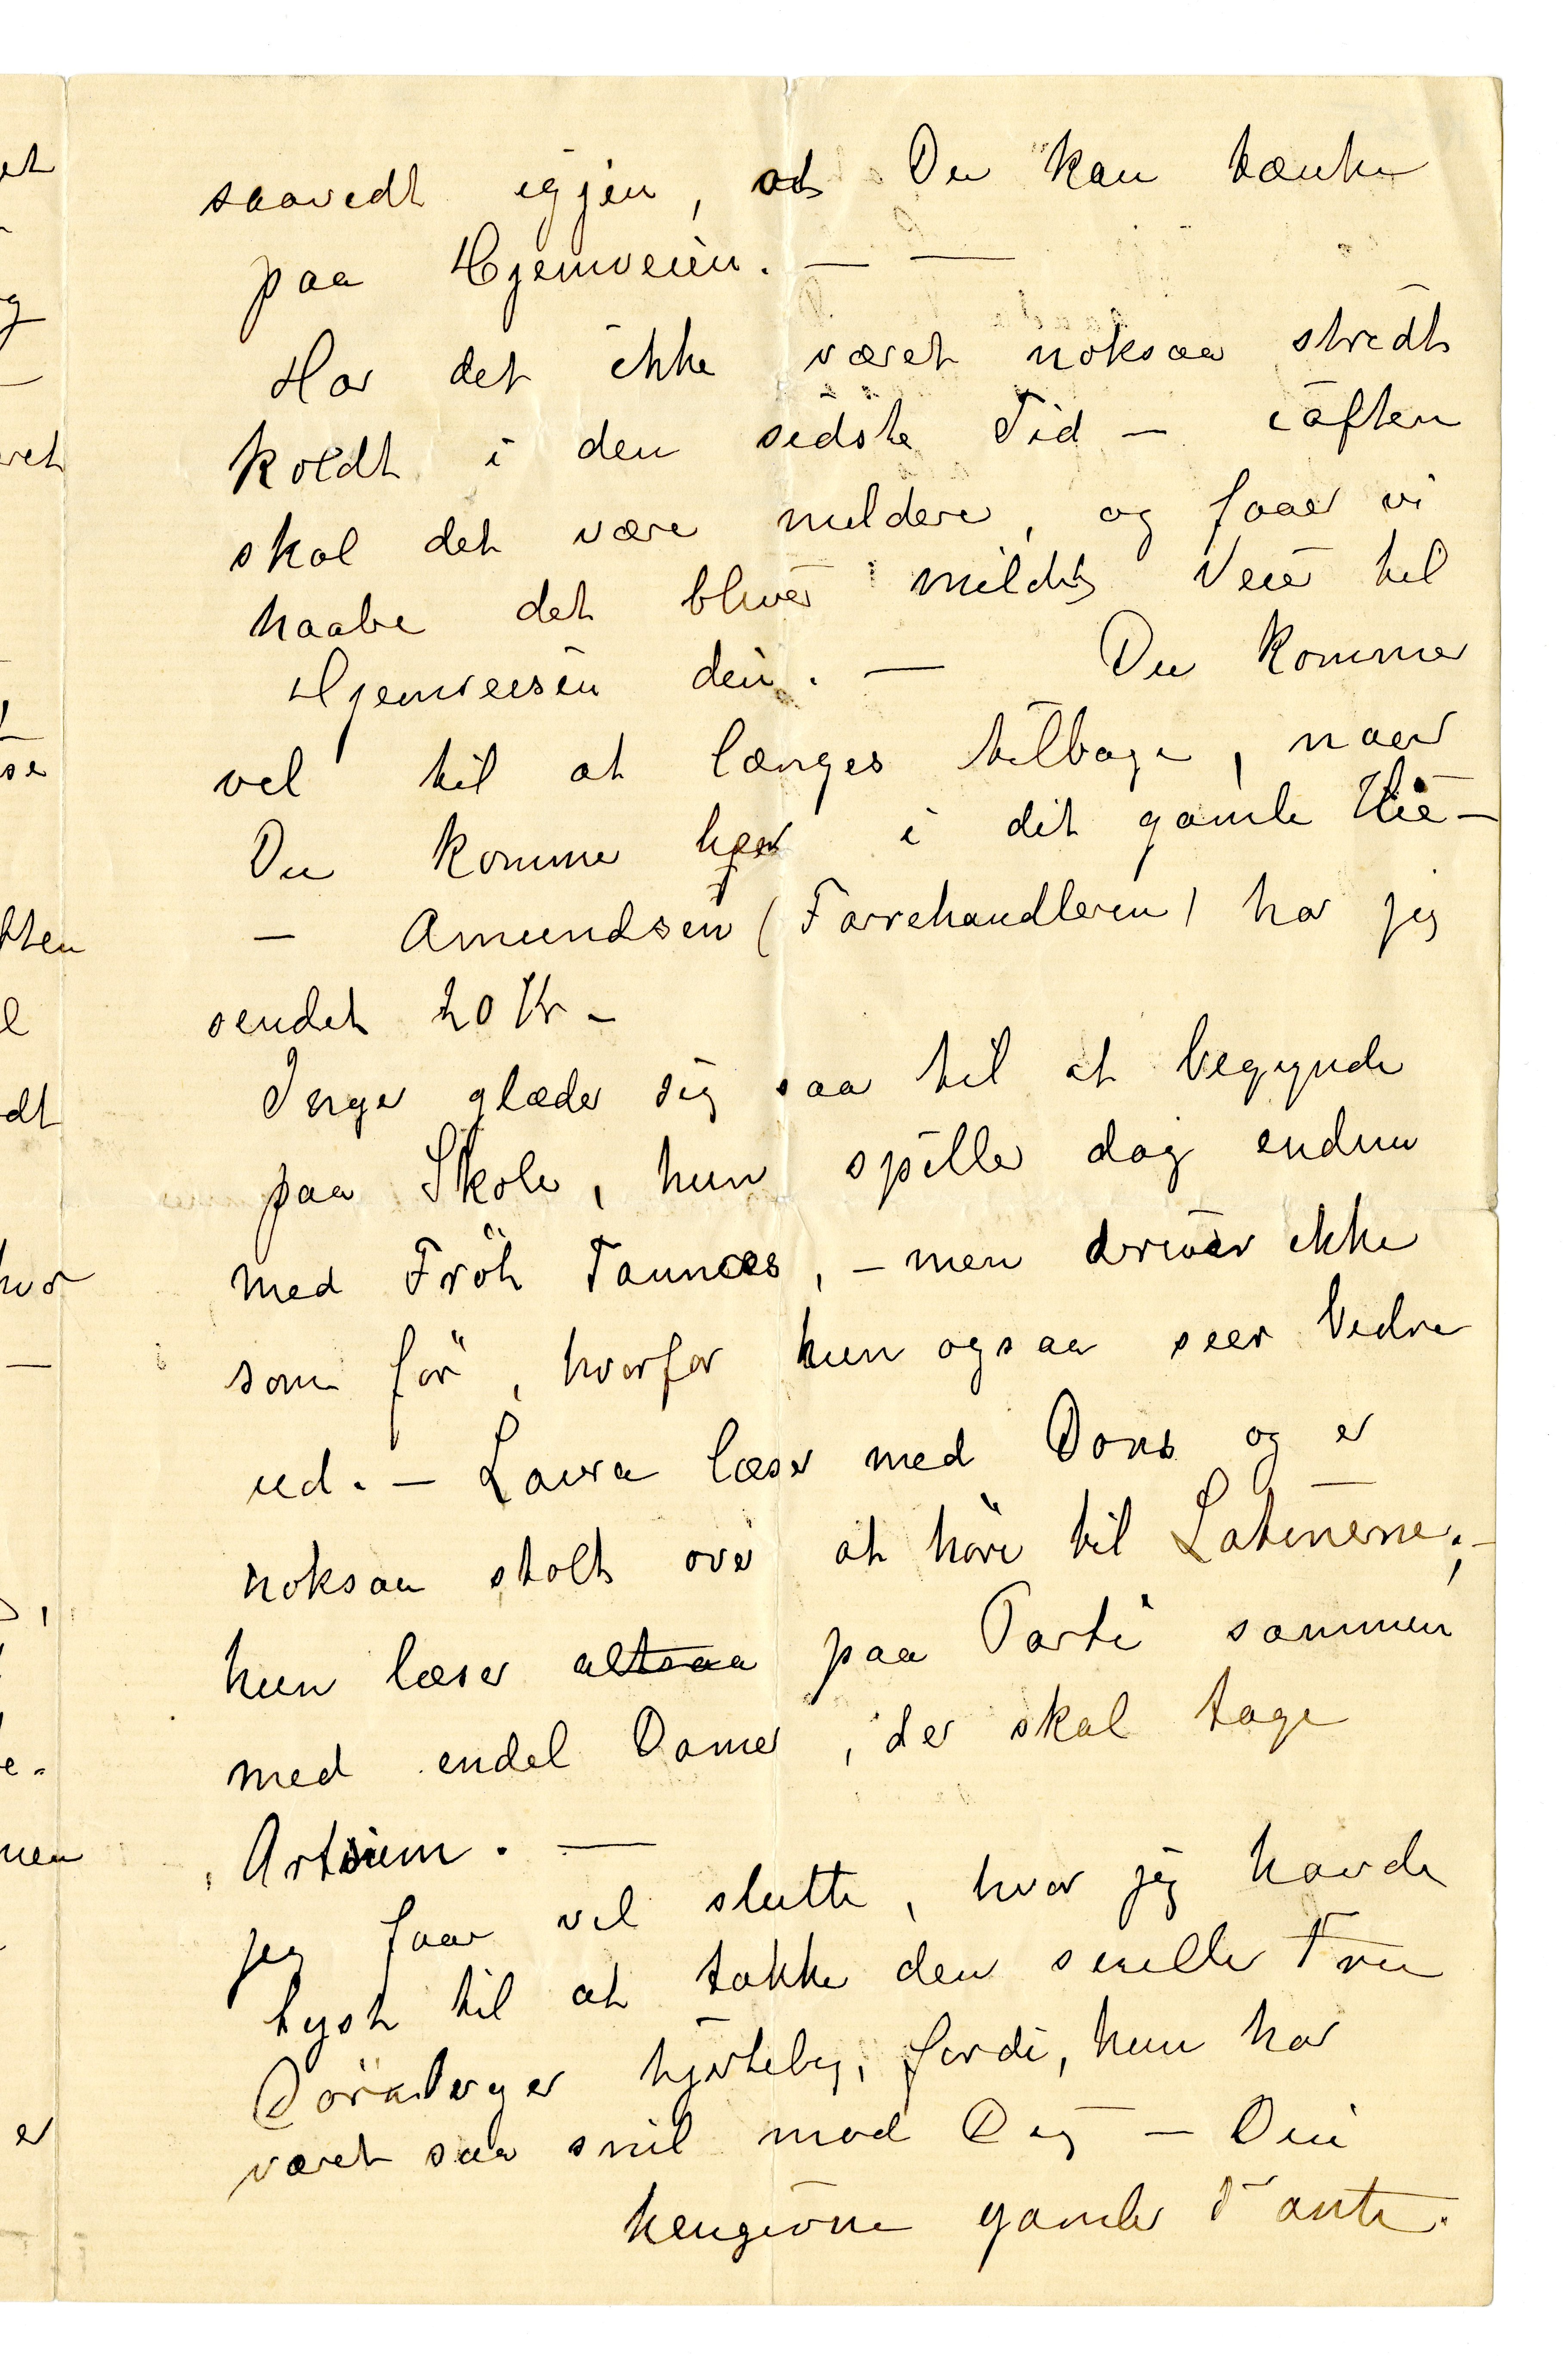 saavidt igjen, at Du kan tænke
paa Hjemveien. — —
Har det ikke været noksaa stridt
koldt i den sidste Tid — iaften
skal det være mildere, og faaer vi
haabe det bliver mildt Veir til
Hjemreisen din. — Du kommer
vel til at længes tilbage, naar
Du kommer her i dit gamle Hie —
— Amundsen (Farvehandleren) har jeg
sendet 20 Kr —
Inger glæder sig saa til at begynde
paa Skole, hun spiller dog endnu
med Frök Taunæs, — men driver ikke
som för, hvorfor hun ogsaa seer bedre
ud. — Laura læser med Dons og er
noksaa stolt over at höre til Latinerne; —
hun læser altsaa paa Parti sammen
med endel Damer, der skal tage
Artium. —
jeg faar vel slutte, hvor jeg havde
lyst til at takke den snille Fru
hjertelig, fordi, hun har
været saa snil mod Dig — Din
hengivne gamle Tante.
et
g
—
ret
se
ften
l
dt
hvor
—
e.
men
er